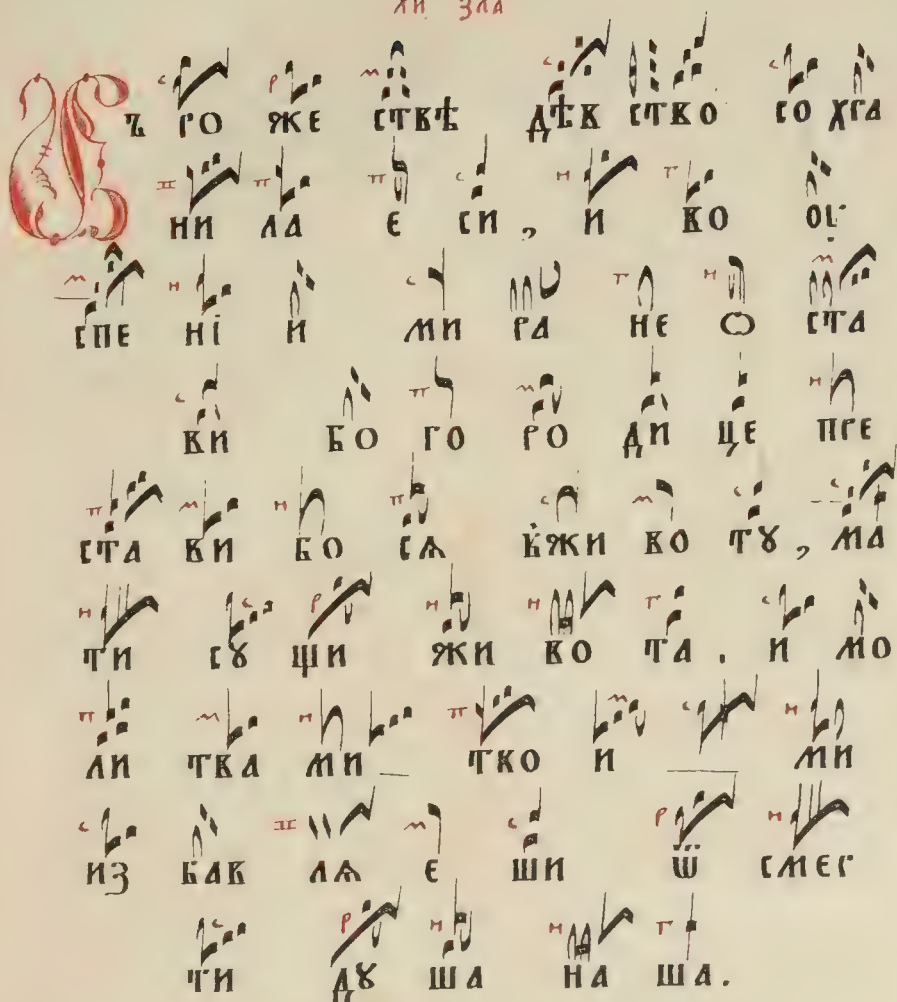 ли зла
Въ го же ствѣ дѣв ство со хга
ни ла е си, и во оу
спе ні и ми ра не ѡ ста
ви бо го ро ди це пре
ста ви бо сѧ къжи во тꙋ, ма
ти сꙋ щи жи во та. и мо
ли тва ми тко и ми
из бав лѧ е ши ѿ смер
ти дꙋ ша на ша.